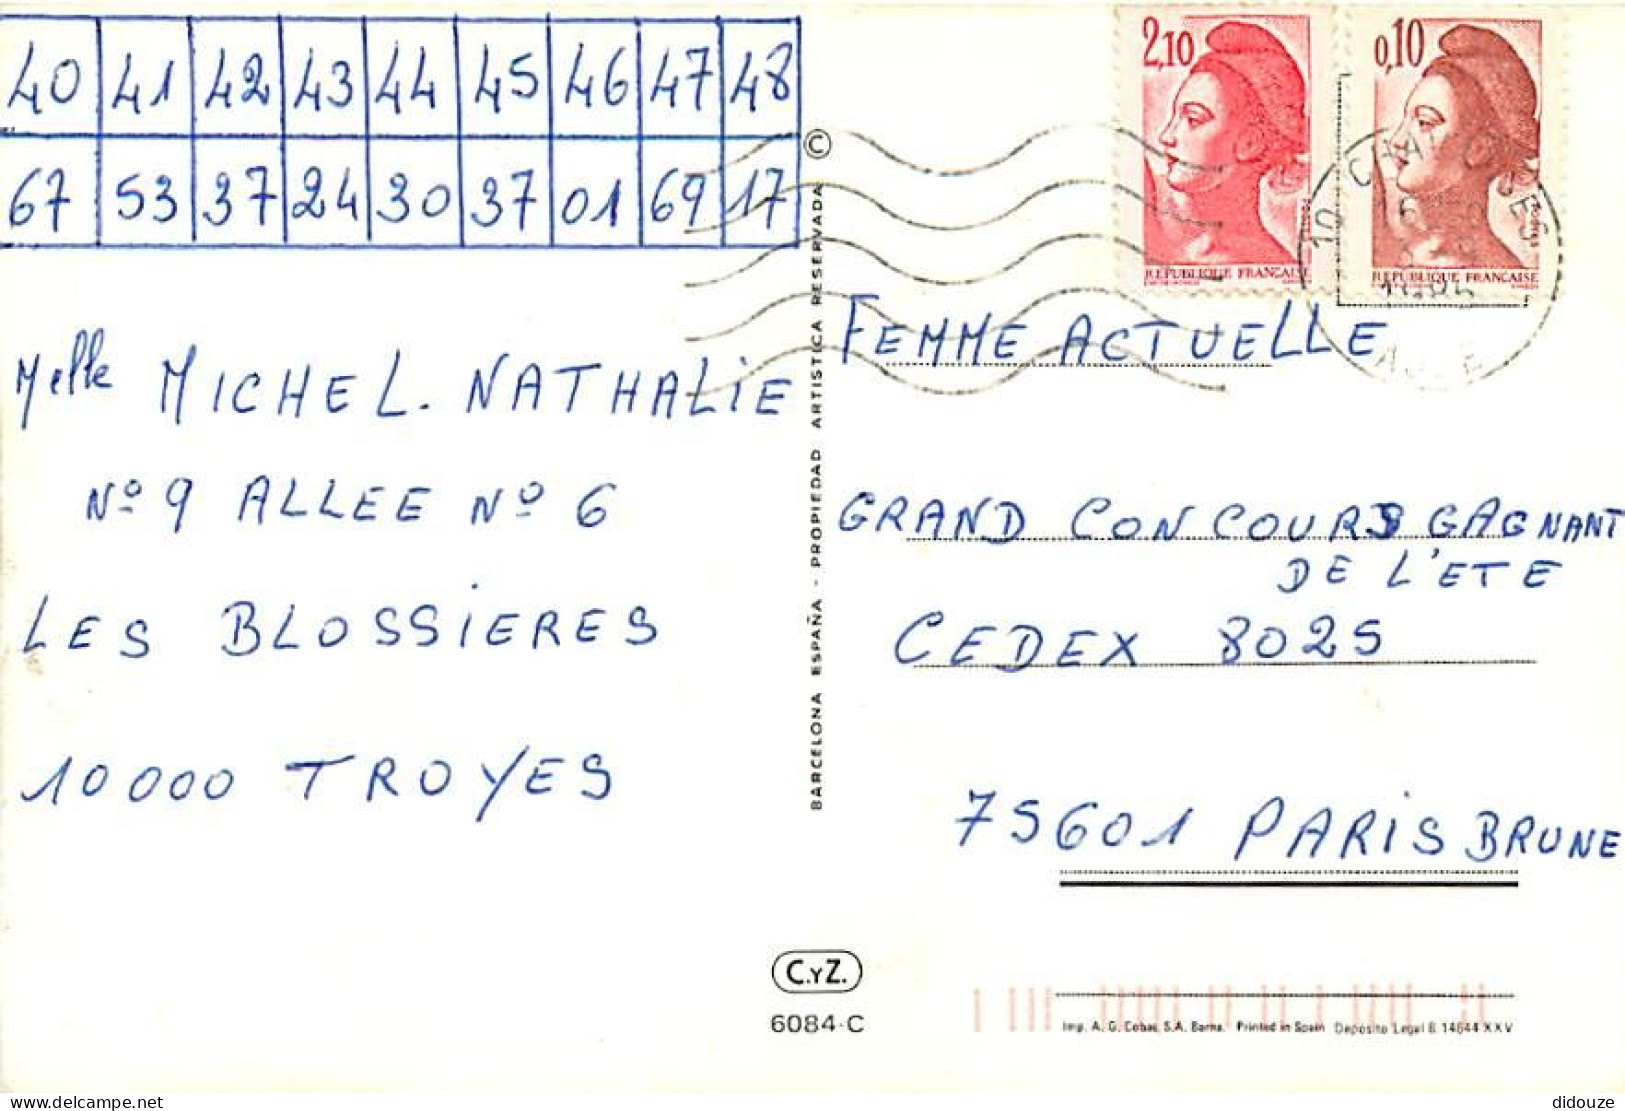 40 41 42 43 44 45 46 47 48
67 53 37 24 30 37 01 69 17
Melle MICHEL. NATHALIE
N° 9 ALLEE N° 6
LES BLOSSIERES
10000 TROYES
©
BARCELONA ESPAÑA - PROPIEDAD ARTISTICA RESERVADA
2,10
REPUBLIQUE FRANÇAISE
POSTES
0,10
REPUBLIQUE FRANÇAISE
POSTES
10
16
AUBE
FEMME ACTUELLE
GRAND CONCOURS GAGNANT
DE L'ETE
CEDEX 8025
75601 PARIS BRUNE
C.YZ.
6084-C
Imp. A. G. Cobas, S.A. Barna. Printed in Spain Deposito Legal B. 14644 XXV
delcampe.net
didouze